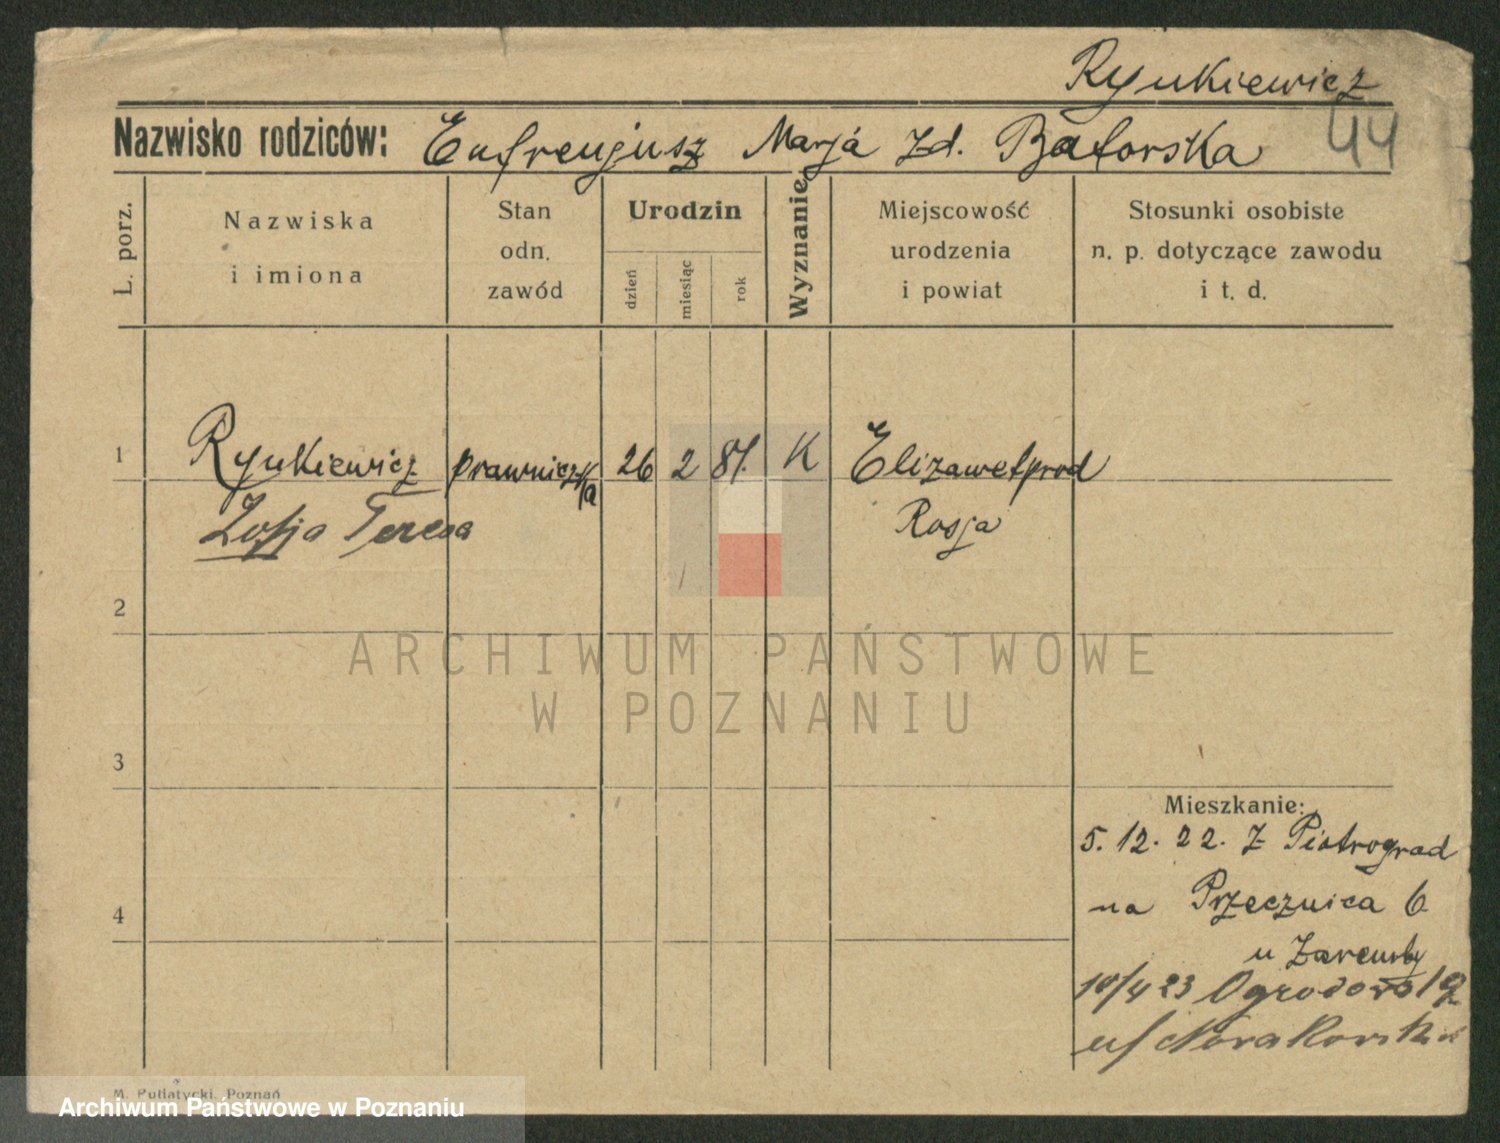 Rynkiewicz
Nazwisko rodziców: Eufrenjusz Marja zd. Batorska 44
L. porz.
Nazwiska
i imiona
Stan
odn.
zawód
Urodzin
dzień
miesiąc
rok
Wyznanie
Miejscowość
urodzenia
i powiat
Stosunki osobiste
n. p. dotyczące zawodu
i t. d.
1 Rynkiewicz prawniczka 26 2 81. K Elizawetgrod
Zofja Teresa Rosja
2
ARCHIWUM PAŃSTWOWE
W POZNANIU
3
Mieszkanie:
5. 12. 22. z Piotrograd
na Przecznica 6
4
u Zaremby
10/4 23 Ogrodowa 19
u/ Norakorski
M. Putiatycki, Poznań
Archiwum Państwowe w Poznaniu